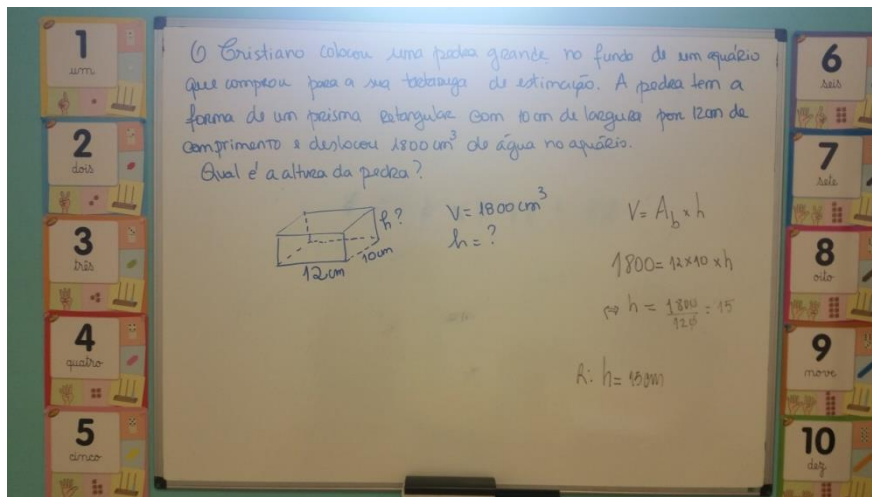 1
um
2
dois
3
três
4
quatro
5
cinco
6) Cristiano colocou uma pedra grande no fundo de um aquário
que comprou para a sua tartaruga de estimação. A pedra tem a
forma de um prisma retangular com 10 cm de largura por 12cm de
comprimento e deslocou 1800 cm³ de água no aquário.
Qual é a altura da pedra?
h?
10cm
12cm
V = 1800 cm³
h = ?
V = A_b × h
1800 = 12×10 × h
⇔ h = 1800/120 = 15
R: h = 15cm
6
seis
7
sete
8
oito
9
nove
10
dez